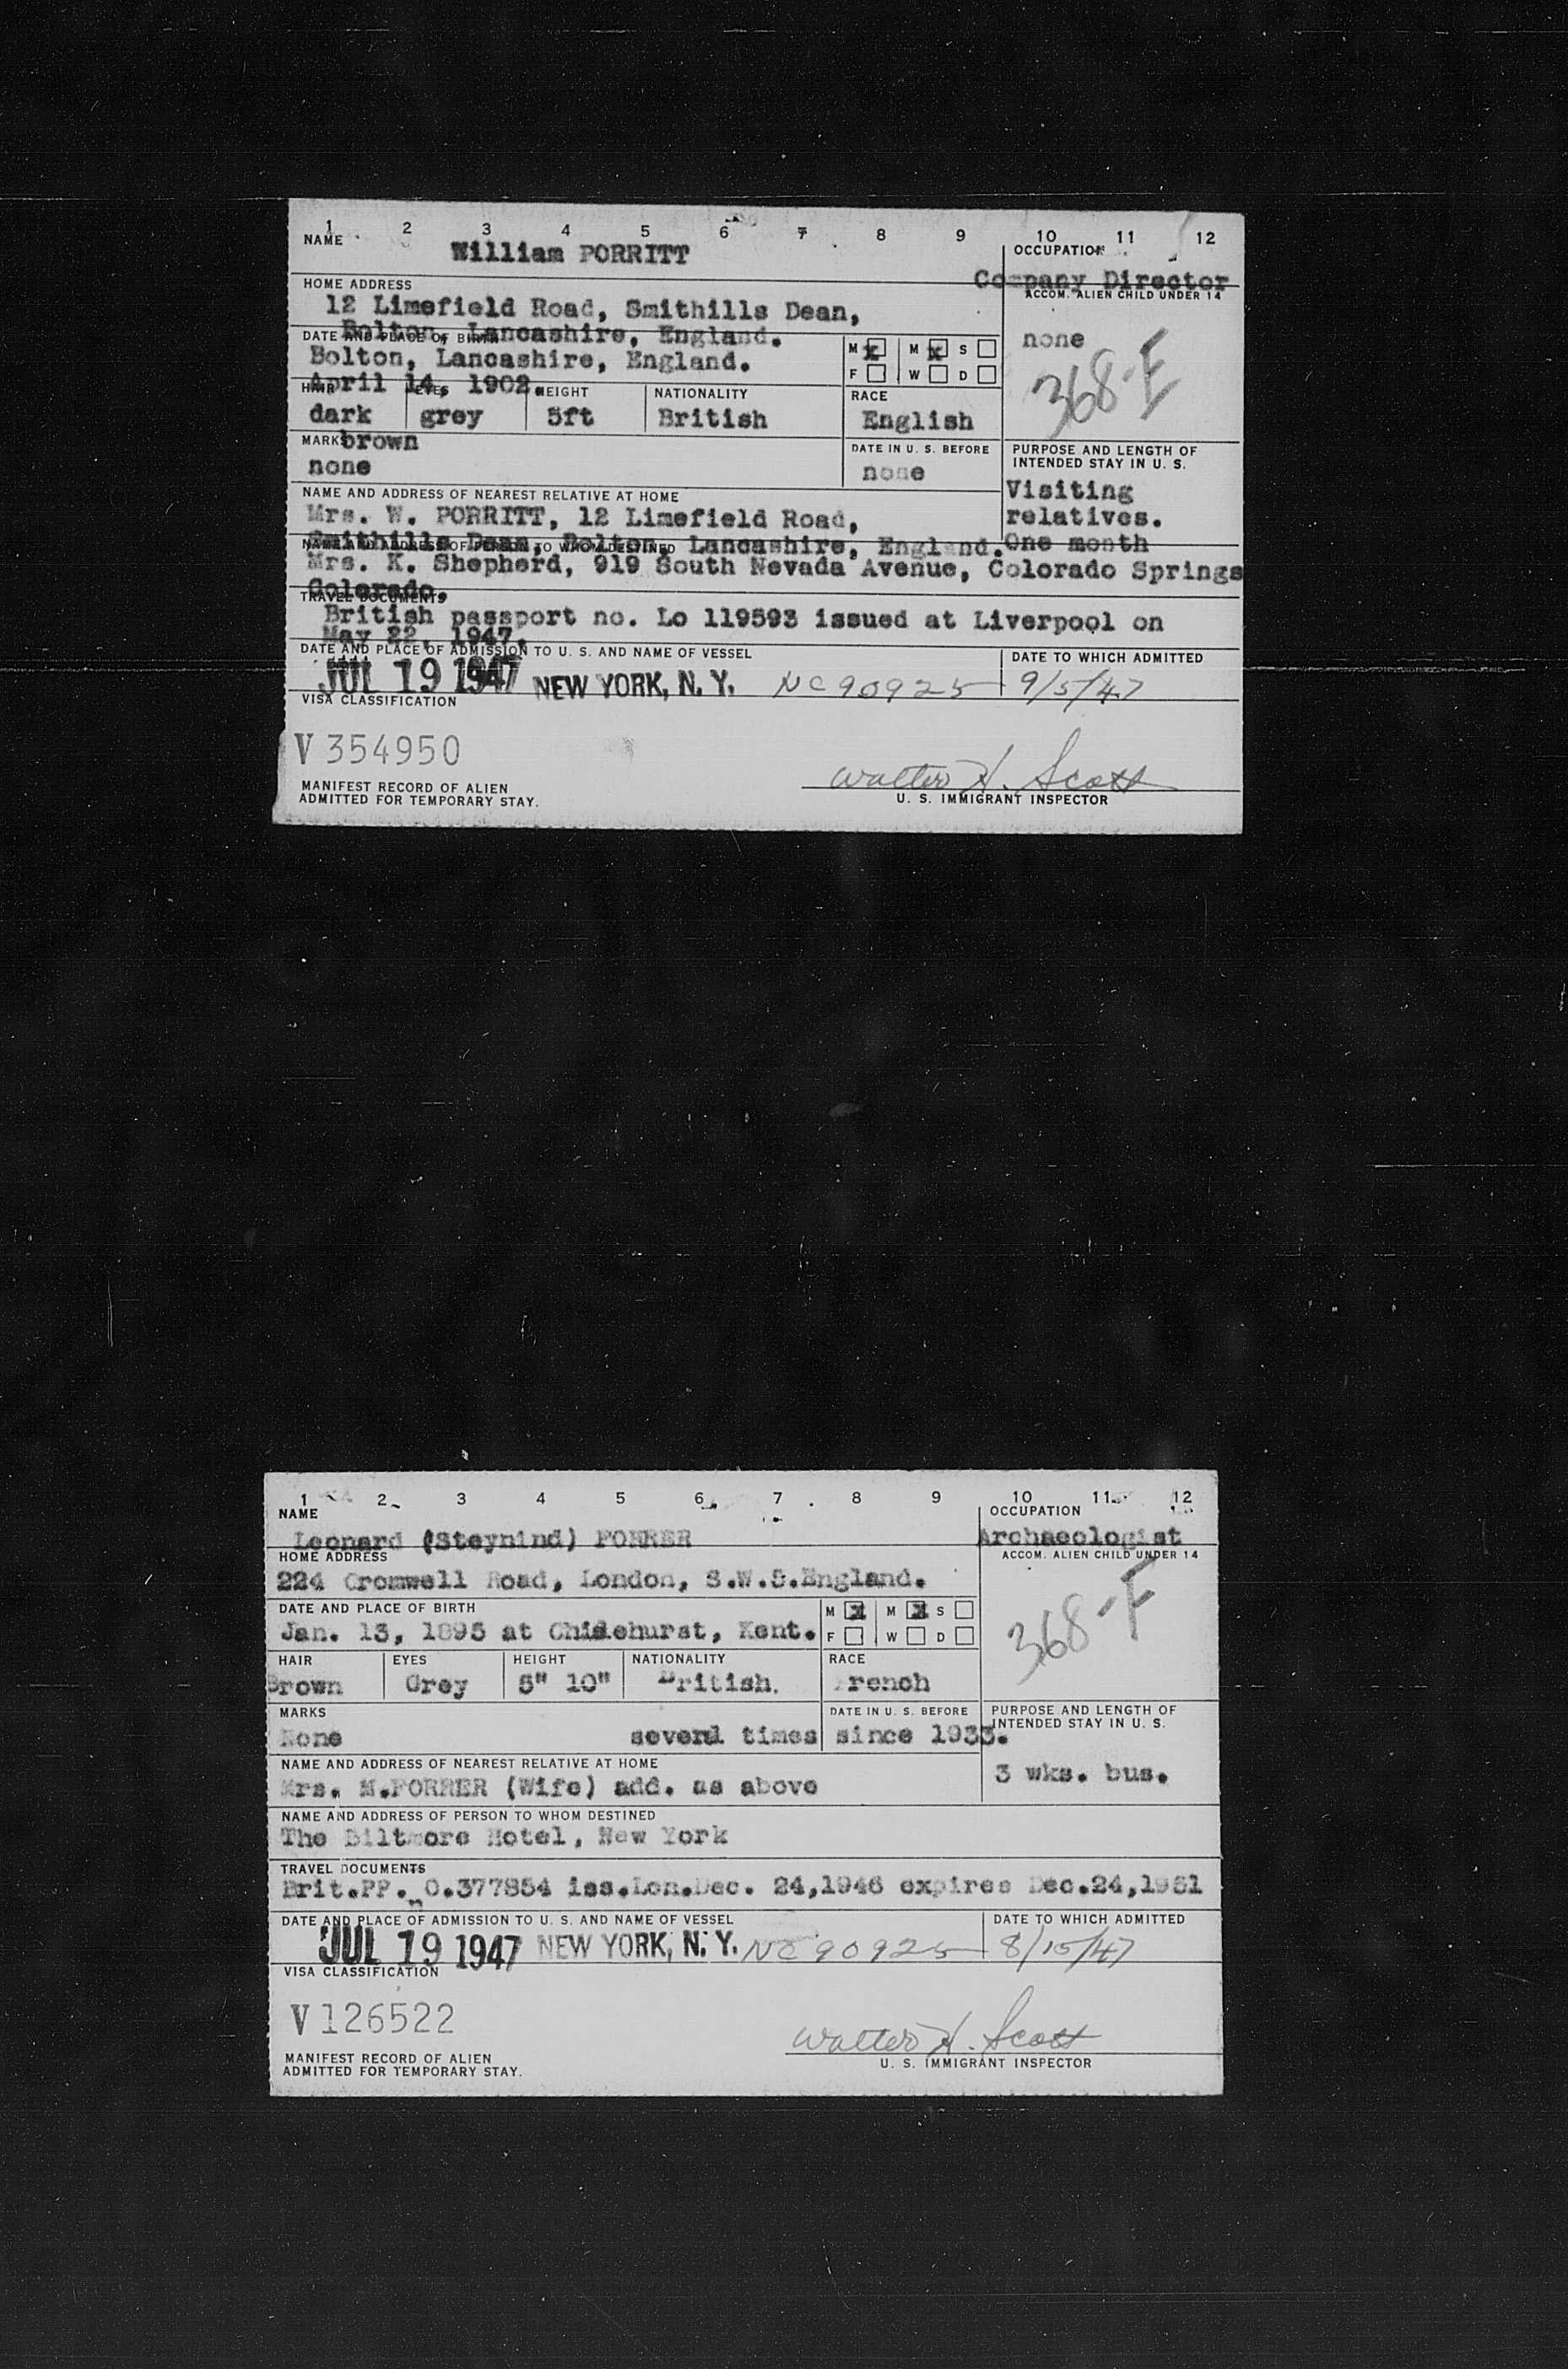 1 2 3 4 5 6 7 8 9 10 11 12
NAME OCCUPATION
William PORRITT
Company Director
HOME ADDRESS ACCOM. ALIEN CHILD UNDER 14
12 Limefield Road, Smithills Dean,
Bolton, Lancashire, England. none
DATE AND PLACE OF BIRTH M x M x S
Bolton, Lancashire, England. F W D
April 14, 1902. 368-E
HAIR EYES HEIGHT NATIONALITY RACE
dark grey 5ft British English
brown
MARKS DATE IN U. S. BEFORE PURPOSE AND LENGTH OF
INTENDED STAY IN U. S.
none none
Visiting
NAME AND ADDRESS OF NEAREST RELATIVE AT HOME
Mrs. W. PORRITT, 12 Limefield Road, relatives.
Smithills Dean, Bolton, Lancashire, England. One month
NAME AND ADDRESS OF PERSON TO WHOM DESTINED
Mrs. K. Shepherd, 919 South Nevada Avenue, Colorado Springs
Colorado.
TRAVEL DOCUMENTS
British passport no. Lo 119593 issued at Liverpool on
May 22, 1947.
DATE AND PLACE OF ADMISSION TO U. S. AND NAME OF VESSEL DATE TO WHICH ADMITTED
JUL 19 1947 NEW YORK, N. Y. NC 90925 9/5/47
VISA CLASSIFICATION
V 354950
Walter H. Scott
MANIFEST RECORD OF ALIEN
ADMITTED FOR TEMPORARY STAY. U. S. IMMIGRANT INSPECTOR
1 2 3 4 5 6 7 8 9 10 11 12
NAME OCCUPATION
Leonard (Steynind) FORRER Archaeologist
HOME ADDRESS ACCOM. ALIEN CHILD UNDER 14
224 Cromwell Road, London, S.W.5.England.
DATE AND PLACE OF BIRTH M x M x S
Jan. 13, 1895 at Chislehurst, Kent. F W D
368-F
HAIR EYES HEIGHT NATIONALITY RACE
Brown Grey 5" 10" British. French
MARKS DATE IN U. S. BEFORE PURPOSE AND LENGTH OF
INTENDED STAY IN U. S.
None several times since 1933.
NAME AND ADDRESS OF NEAREST RELATIVE AT HOME
Mrs. M.FORRER (Wife) add. as above 3 wks. bus.
NAME AND ADDRESS OF PERSON TO WHOM DESTINED
The Biltmore Hotel, New York
TRAVEL DOCUMENTS
Brit.PP. O.377854 iss.Lon.Dec. 24,1946 expires Dec.24,1951
DATE AND PLACE OF ADMISSION TO U. S. AND NAME OF VESSEL DATE TO WHICH ADMITTED
JUL 19 1947 NEW YORK, N. Y. NC 90925 8/15/47
VISA CLASSIFICATION
V 126522
Walter H. Scott
MANIFEST RECORD OF ALIEN
ADMITTED FOR TEMPORARY STAY. U. S. IMMIGRANT INSPECTOR